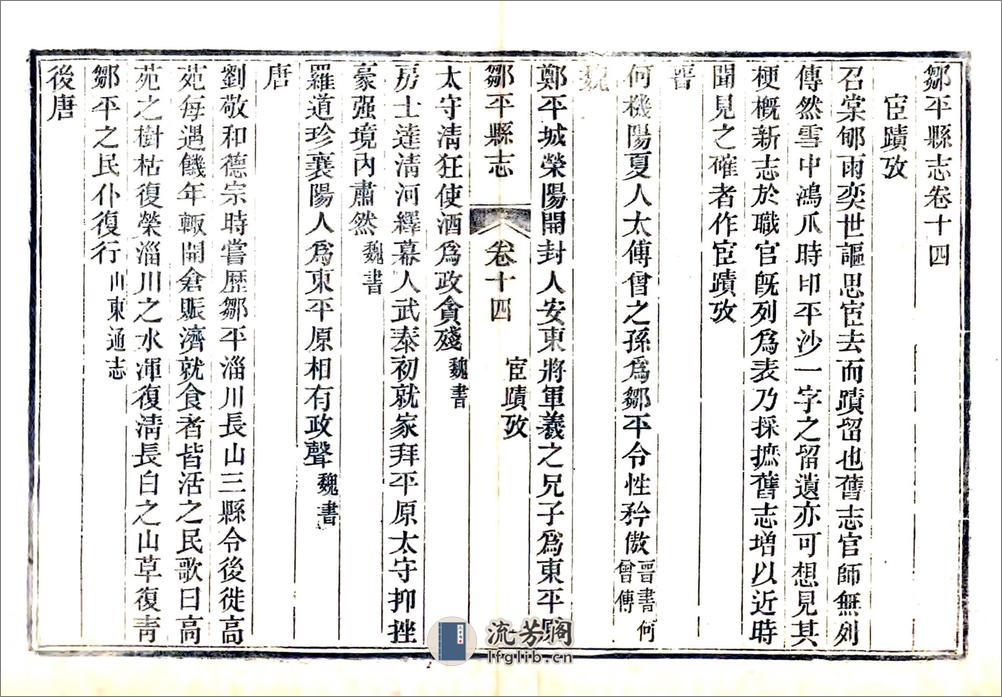 鄒平縣志卷十四
宦蹟攷
召棠郇雨奕世謳思宦去而蹟留也舊志官師無列
傳然雪中鴻爪時印平沙一字之留遺亦可想見其
梗概新志於職官旣列爲表乃採摭舊志增以近時
聞見之確者作宦蹟攷
晉
何機陽夏人太傅曾之孫爲鄒平令性矜傲晉書何曾傳
魏
鄭平城榮陽開封人安東將軍羲之兄子爲東平原
鄒平縣志 卷十四 宦蹟攷
太守淸狂使酒爲政貪殘魏書
房士達淸河繹幕人武泰初就家拜平原太守抑挫
豪强境內肅然魏書
羅道珍襄陽人爲東平原相有政聲魏書
唐
劉敬和德宗時嘗歷鄒平淄川長山三縣令後徙高
苑每遇饑年輙開倉賑濟就食者皆活之民歌曰高
苑之樹枯復榮淄川之水渾復淸長白之山草復靑
鄒平之民仆復行山東通志
後唐
流芳阁
lfglib.cn